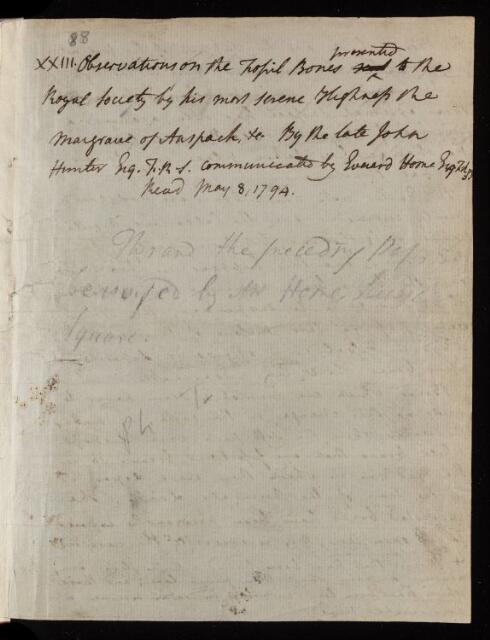 88
XXIII. Observations on the Fossil Bones presented to the
Royal Society by his most serene Highness the
Margrave of Anspach, &c By the late John
Hunter Esq. F.R.S. communicated by Everard Home Esq. F.R.S.
Read May 8, 1794.
This and the preceding Pap
be revised by Mr Home, Leic
Square.